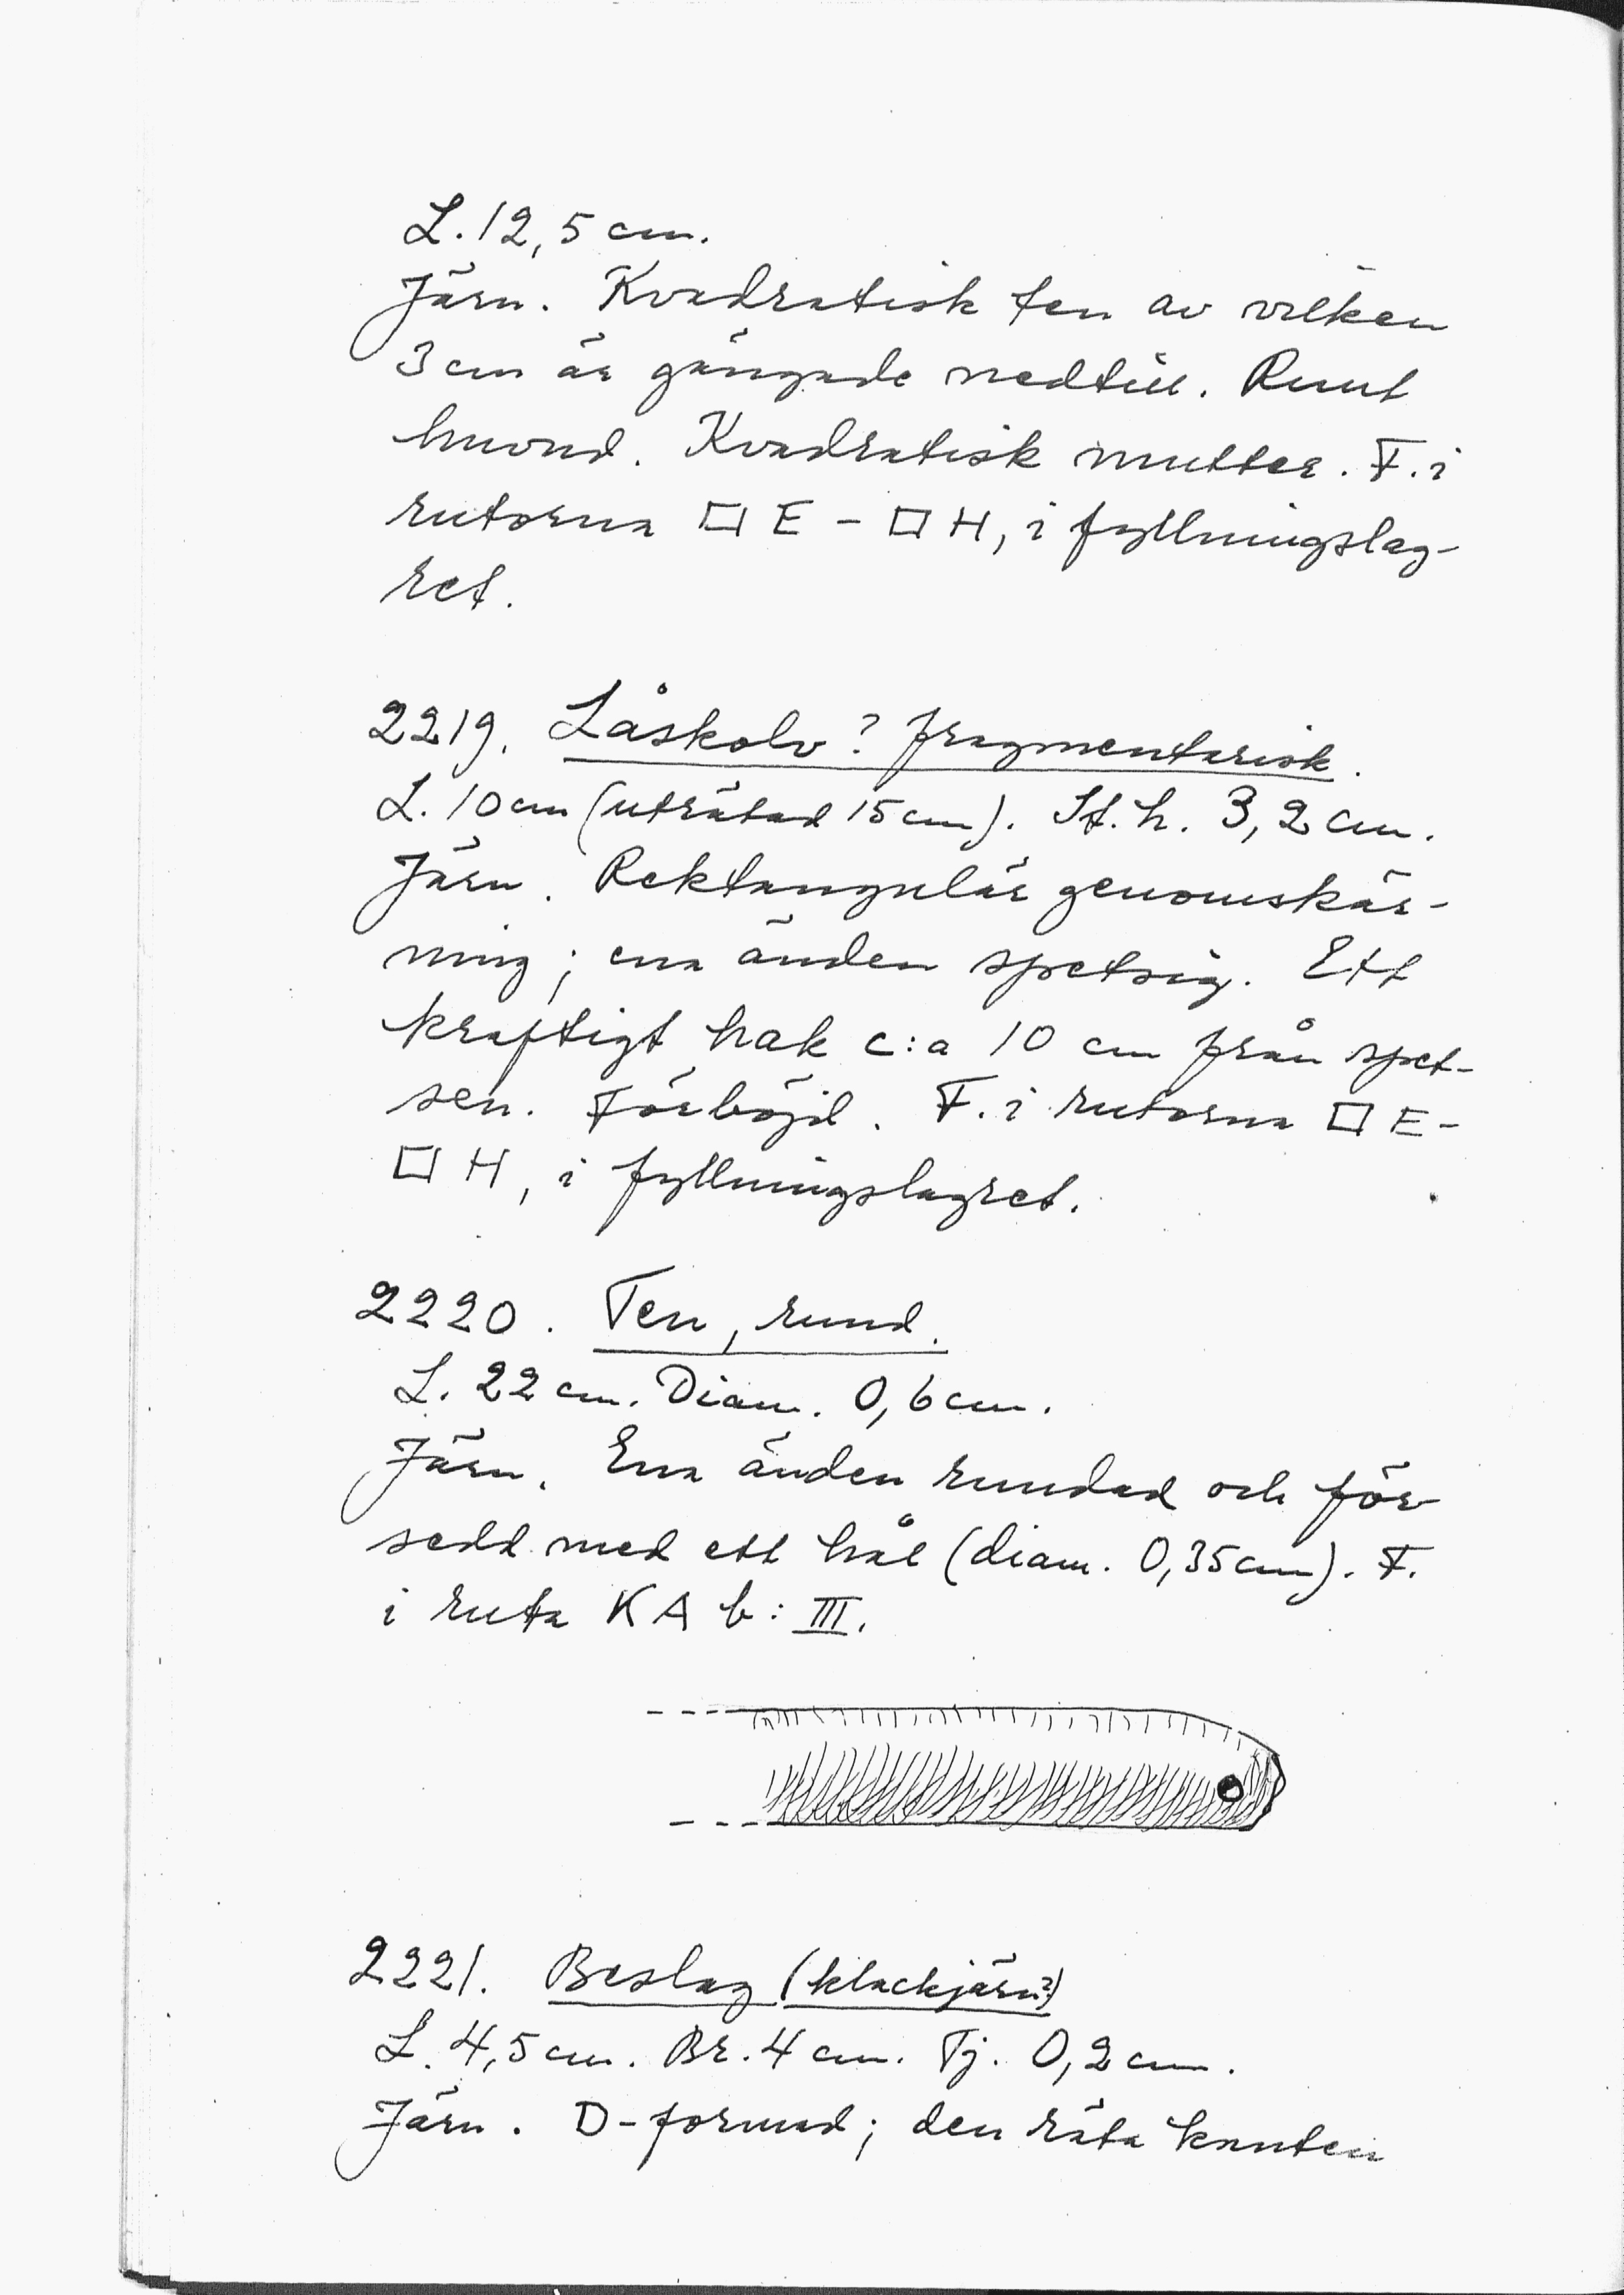 L. 12,5 cm.
Järn. Kvadratisk ten av vilken
3 cm är gängade nedtill. Runt
huvud. Kvadratisk mutter. F. i
rutorna □ E - □ H, i fyllningslag-
ret.
2219. Låskolv? fragmentarisk.
L. 10 cm (uträtad 15 cm). St. h. 3,2 cm.
Järn. Rektangulär genomskär-
ning; ena änden spetsig. Ett
kraftigt hak c:a 10 cm från spet-
sen. Förböjd. F. i rutorna □ E-
□ H, i fyllningslagret.
2220. Ten, rund.
L. 22 cm. Diam. 0,6 cm.
Järn. Ena änden rundad och för-
sedd med ett hål (diam. 0,35 cm). F.
i ruta K A b: III.
2221. Beslag (klackjärn?)
L. 4,5 cm. Br. 4 cm. Tj. 0,2 cm.
Järn. D-formad; den räta kanten